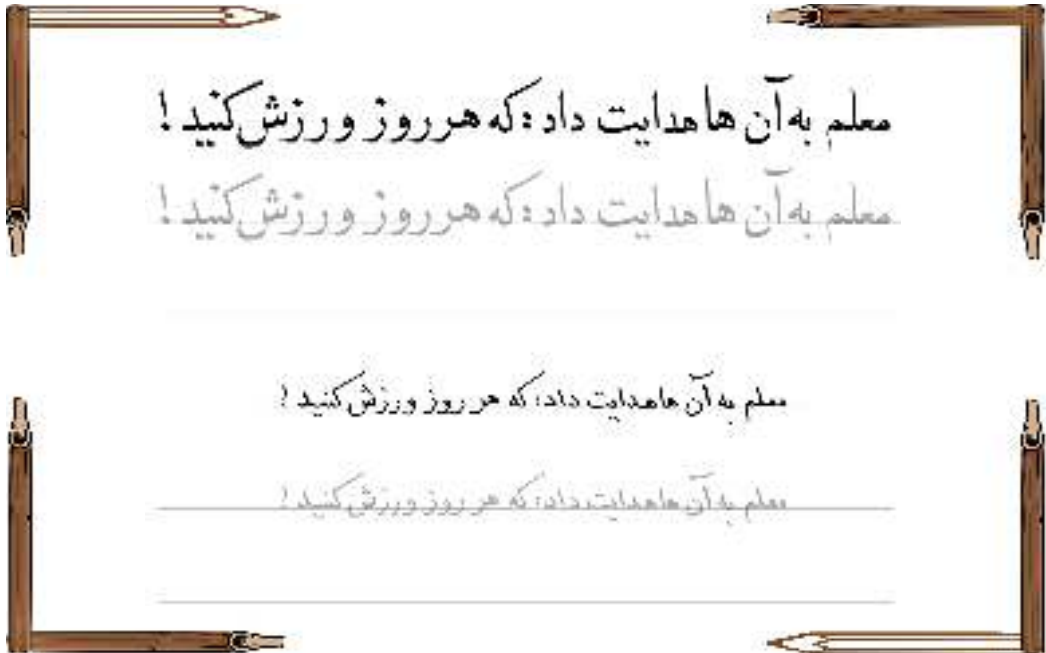 معلم به آن ها هدایت داد؛ که هر روز ورزش کنید !
معلم به آن ها هدایت داد؛ که هر روز ورزش کنید !
معلم به آن ها هدایت داد؛ که هر روز ورزش کنید !
معلم به آن ها هدایت داد؛ که هر روز ورزش کنید !